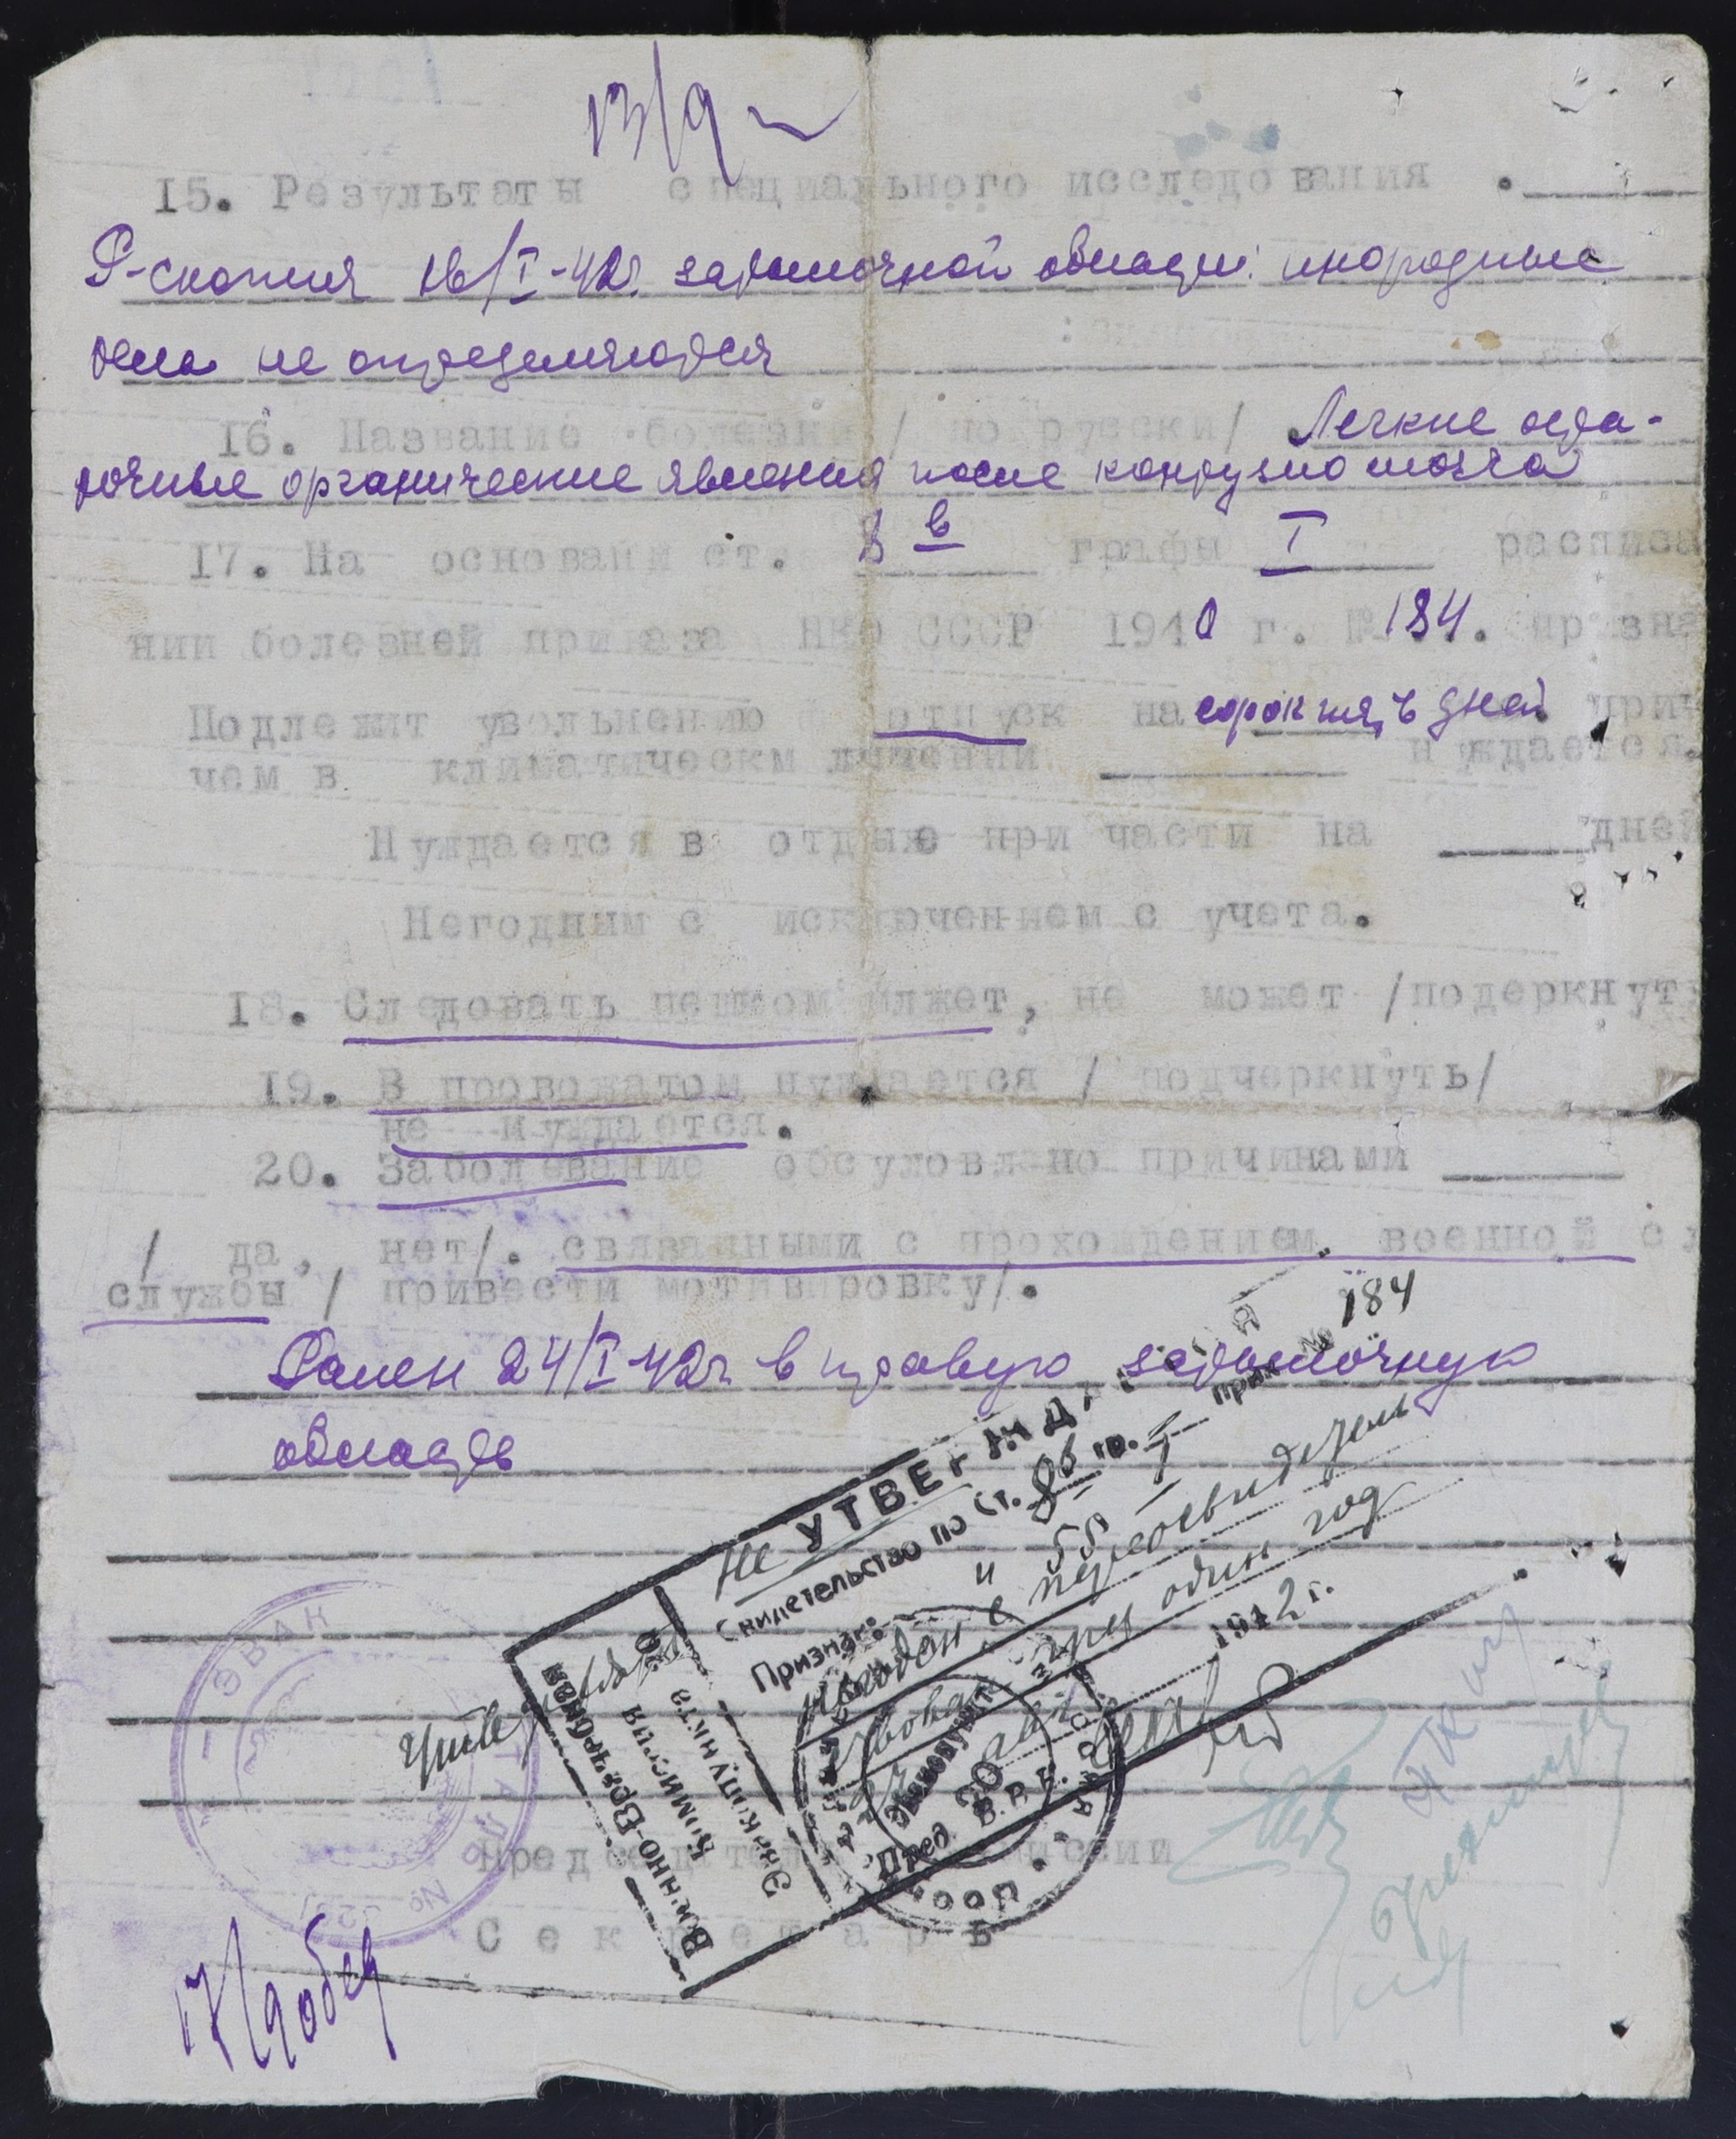 13/9
15. Результаты специального исследования .
R-скопия 16/I-42г. затылочной области: инородные
тела не определяются
16. Название болезни / по русски/ Легкие оста-
точные органические явления после контузио мозга
17. На основании ст. 8 в графы I расписа
нии болезней приказа НКО СССР 1940 г. № 184. призна
Подлежит увольнению отпуск на сорок пять дней прич
чем в климатическм лечении нуждается.
Нуждается в отдыхе при части на дней
Негодным с исключением с учета.
18. Следовать пешком может, не может /подеркнуть
19. В провожатом нуждается / подчеркнуть/
не нуждается.
20. Заболевание обсуловлено причинами
/ да, нет/. связанными с прохождением военной сл
службы / привести мотивировку/.
Ранен 24/I-42г в правую затылочную
область
Не УТВЕРЖДАЕТСЯ
Свидетельство по Ст. 8б гр. I прик № 184
и 55
Признан:
негоден с переосвидетель
через один год
1942 г.
Пред В.В.К.
Военно-Врачебная
Комиссия
Эвакопункта
Председатель комиссии
Секретарь
ЭВАК